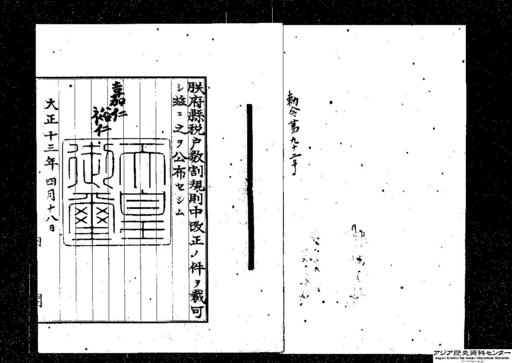 勅令第九十三号
朕府縣税戸數割規則中改正ノ件ヲ裁可
シ茲ニ之ヲ公布セシム
嘉仁
裕仁
天皇
御璽
大正十三年四月十八日
アジア歴史資料センター
Japan Center for Asian Historical Records